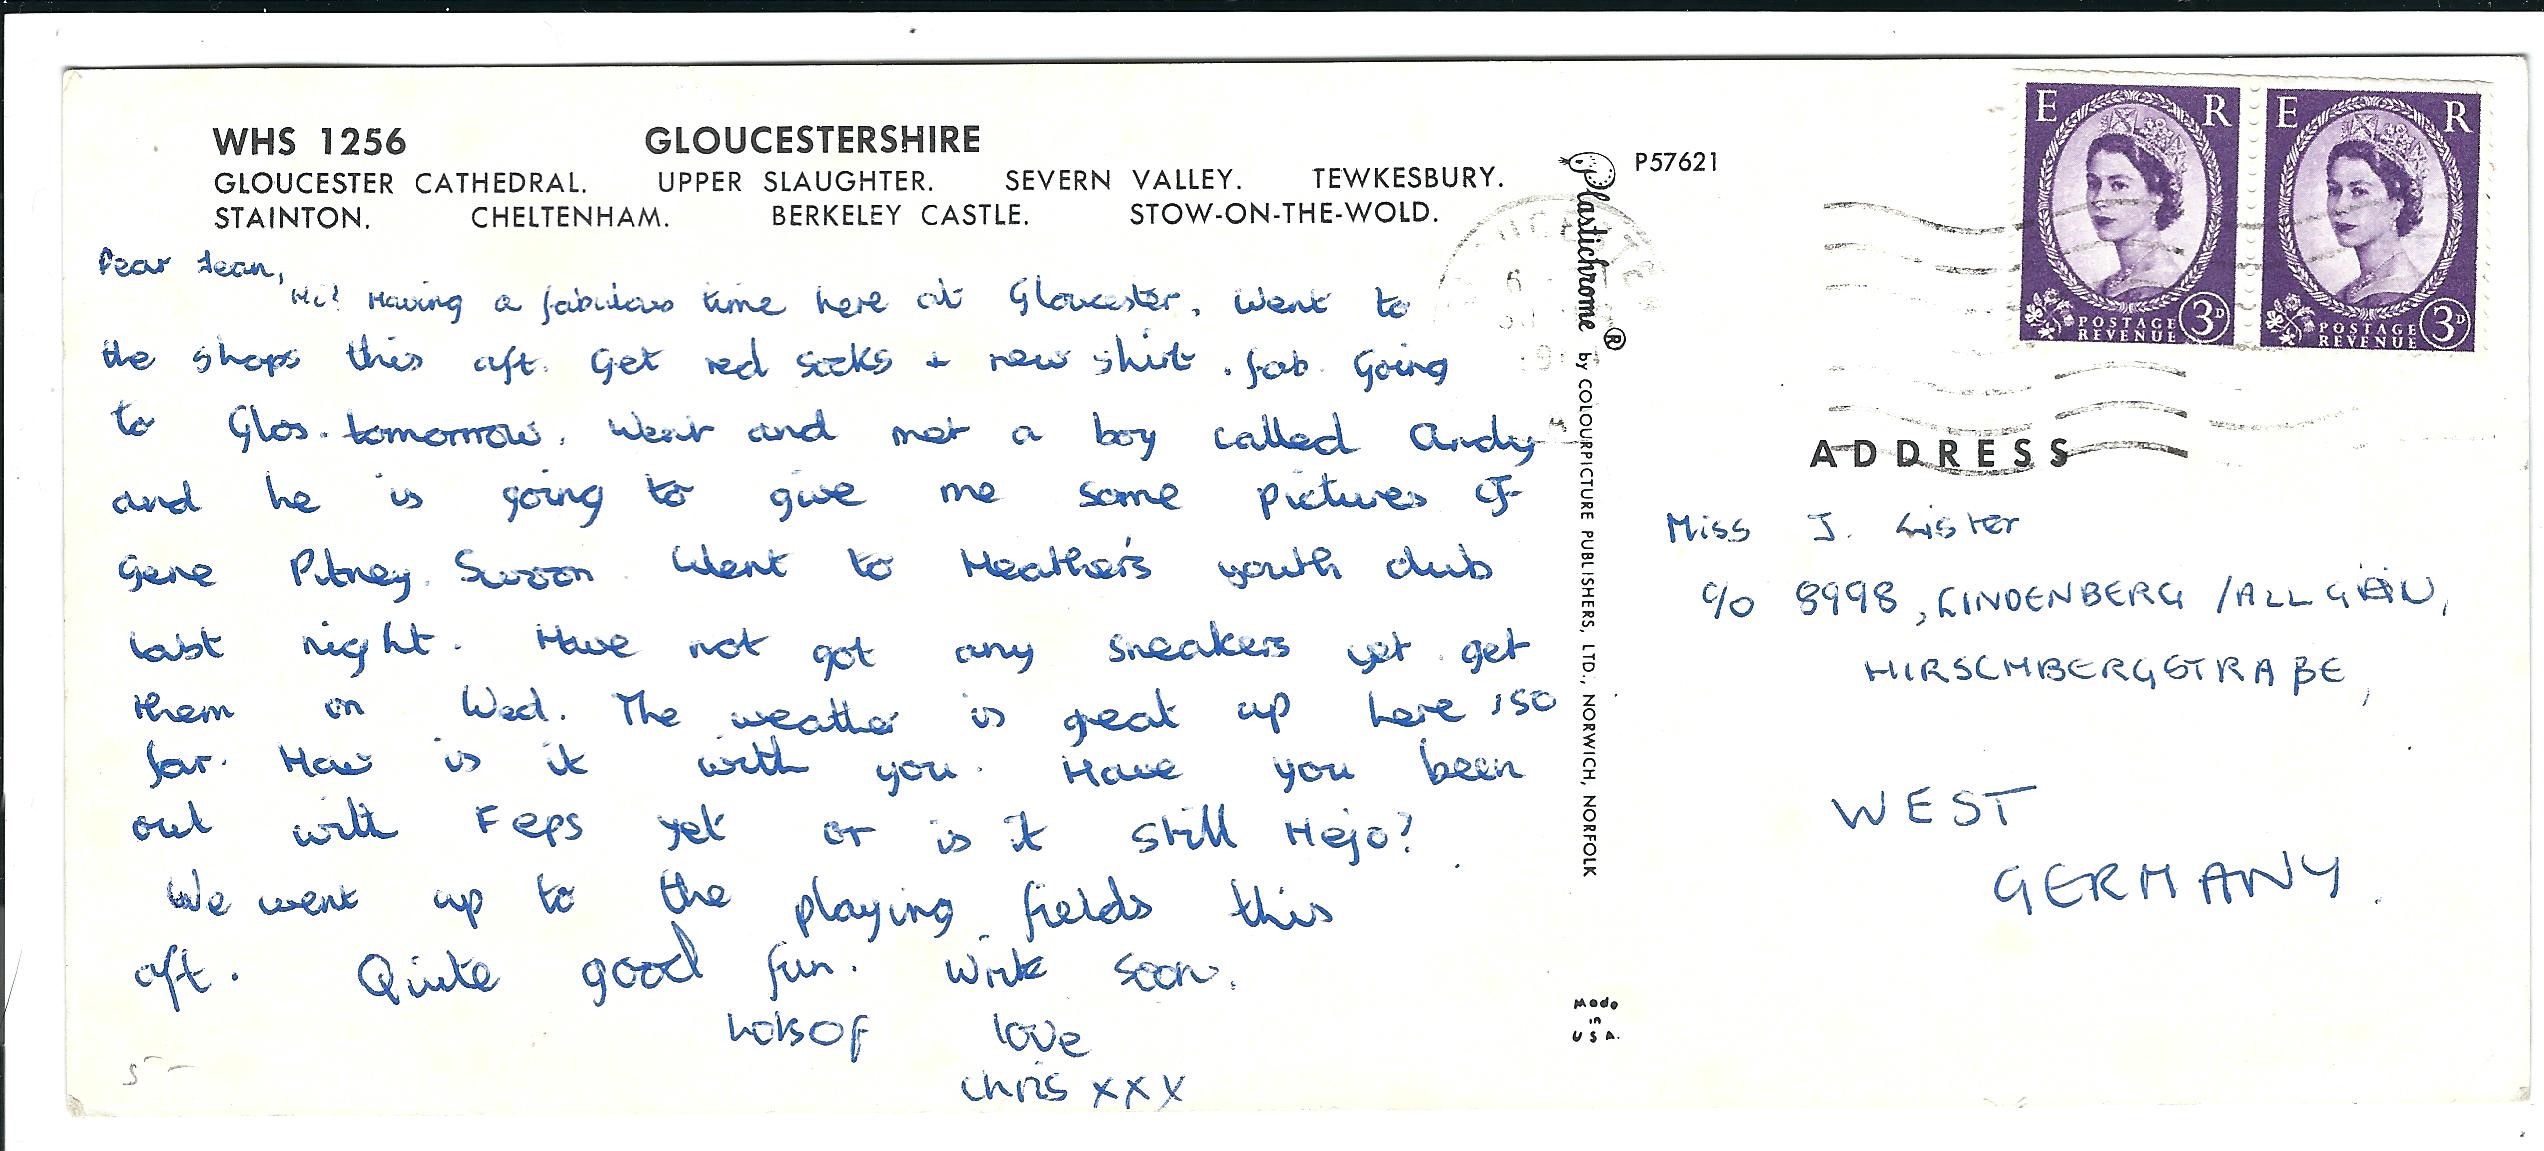 WHS 1256 GLOUCESTERSHIRE
GLOUCESTER CATHEDRAL. UPPER SLAUGHTER. SEVERN VALLEY. TEWKESBURY.
STAINTON. CHELTENHAM. BERKELEY CASTLE. STOW-ON-THE-WOLD.
Dear Jean,
Hi! Having a fabulous time here at Gloucester. Went to
the shops this aft. Get red socks + new shirt. fab. Going
to Glos. tomorrow. Went and met a boy called Andy
and he is going to give me some pictures of
Gene Pitney. Swoon. Went to Heather's youth club
last night. Have not got any sneakers yet get
them on Wed. The weather is great up here, so
far. How is it with you. Have you been
out with Feps yet or is it still Hejo?
We went up to the playing fields this
aft. Quite good fun. Write soon.
Lots of love
Chris xxx
Plastichrome ® by COLOURPICTURE PUBLISHERS, LTD., NORWICH, NORFOLK
Made
in
USA.
P57621
E R
POSTAGE
REVENUE 3D
E R
POSTAGE
REVENUE 3D
ADDRESS
Miss J. Lister
c/o 8998, LINDENBERG /ALLGÄU,
HIRSCHBERGSTRAßE,
WEST
GERMANY.
5-